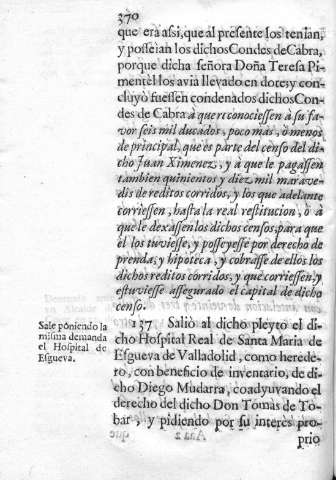 370
que era assi, que al presente los tenian,
y posseian los dichos Condes de Cabra,
porque dicha señora Doña Teresa Pi-
mentel los avia llevado en dote, y con-
cluyò fuessen condenados dichos Con-
des de Cabra à que reconociessen à su fa-
vor seis mil ducados, poco mas, ò menos
de principal, que es parte del censo del di-
cho Juan Ximenez, y à que le pagassen
tambien quinientos y diez mil marave-
dis de reditos corridos, y los que adelante
corriessen, hasta la real restitucion, ò à
que le dexassen los dichos censos, para que
èl los tuviesse, y posseyesse por derecho de
prenda, y hipoteca, y cobrasse de ellos los
dichos reditos corridos, y que corriessen, y
estuviesse assegurado el capital de dicho
censo.
Sale poniendo la
misma demanda
el Hospital de
Esgueva.
137 Saliò al dicho pleyto el di-
cho Hospital Real de Santa Maria de
Esgueva de Valladolid, como herede-
ro, con beneficio de inventario, de di-
cho Diego Mudarra, coadyuvando el
derecho del dicho Don Tomàs de To-
bar, y pidiendo por su interes pro-
prio